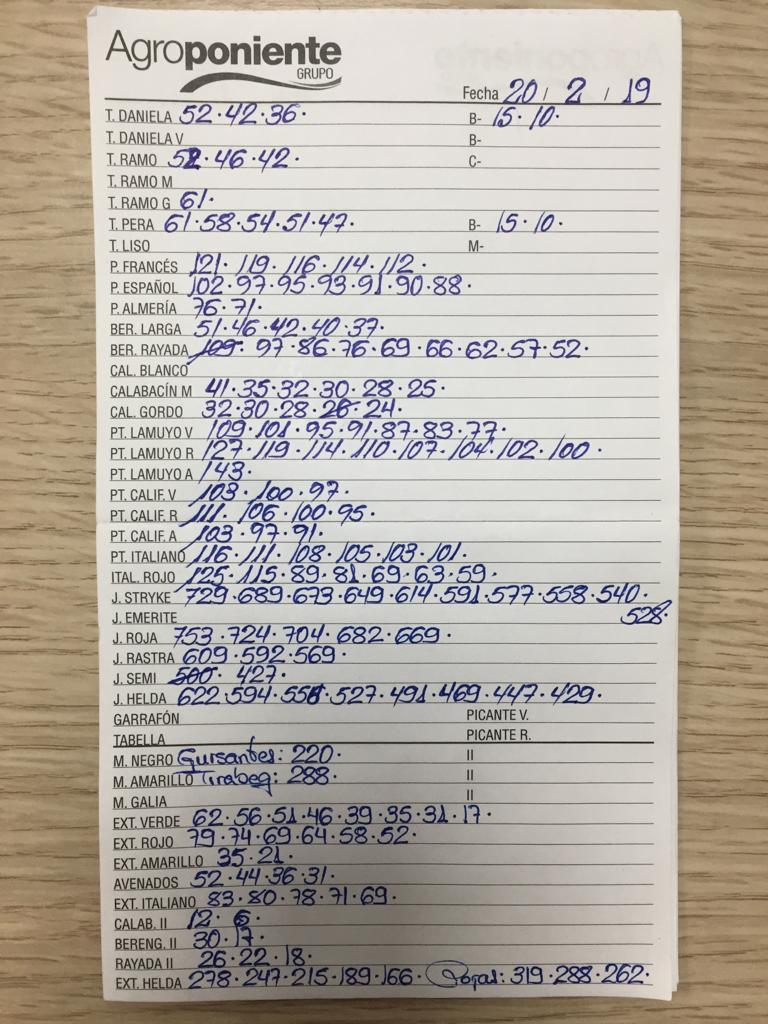 Agroponiente
GRUPO
Fecha 20 / 2 / 19
T. DANIELA 52·42·36· B- 15·10·
T. DANIELA V B-
T. RAMO 52·46·42· C-
T. RAMO M
T. RAMO G 61·
T. PERA 61·58·54·51·47· B- 15·10·
T. LISO M-
P. FRANCÉS 121·119·116·114·112·
P. ESPAÑOL 102·97·95·93·91·90·88·
P. ALMERÍA 76·71·
BER. LARGA 51·46·42·40·37·
BER. RAYADA 109·97·86·76·69·66·62·57·52·
CAL. BLANCO
CALABACÍN M 41·35·32·30·28·25·
CAL. GORDO 32·30·28·26·24·
PT. LAMUYO V 109·101·95·91·87·83·77·
PT. LAMUYO R 127·119·114·110·107·104·102·100·
PT. LAMUYO A 143·
PT. CALIF. V 103·100·97·
PT. CALIF. R 111·106·100·95·
PT. CALIF. A 103·97·91·
PT. ITALIANO 116·111·108·105·103·101·
ITAL. ROJO 125·115·89·81·69·63·59·
J. STRYKE 729·689·673·649·614·591·577·558·540·
J. EMERITE 528·
J. ROJA 753·724·704·682·669·
J. RASTRA 609·592·569·
J. SEMI 500·427·
J. HELDA 622·594·558·527·491·469·447·429·
GARRAFÓN PICANTE V.
TABELLA PICANTE R.
M. NEGRO Guisantes: 220· II
M. AMARILLO Tirabeg: 288· II
M. GALIA II
EXT. VERDE 62·56·51·46·39·35·31·17·
EXT. ROJO 79·74·69·64·58·52·
EXT. AMARILLO 35·21·
AVENADOS 52·44·36·31·
EXT. ITALIANO 83·80·78·71·69·
CALAB. II 12·6·
BERENG. II 30·17·
RAYADA II 26·22·18·
EXT. HELDA 278·247·215·189·166· Rojas: 319·288·262·